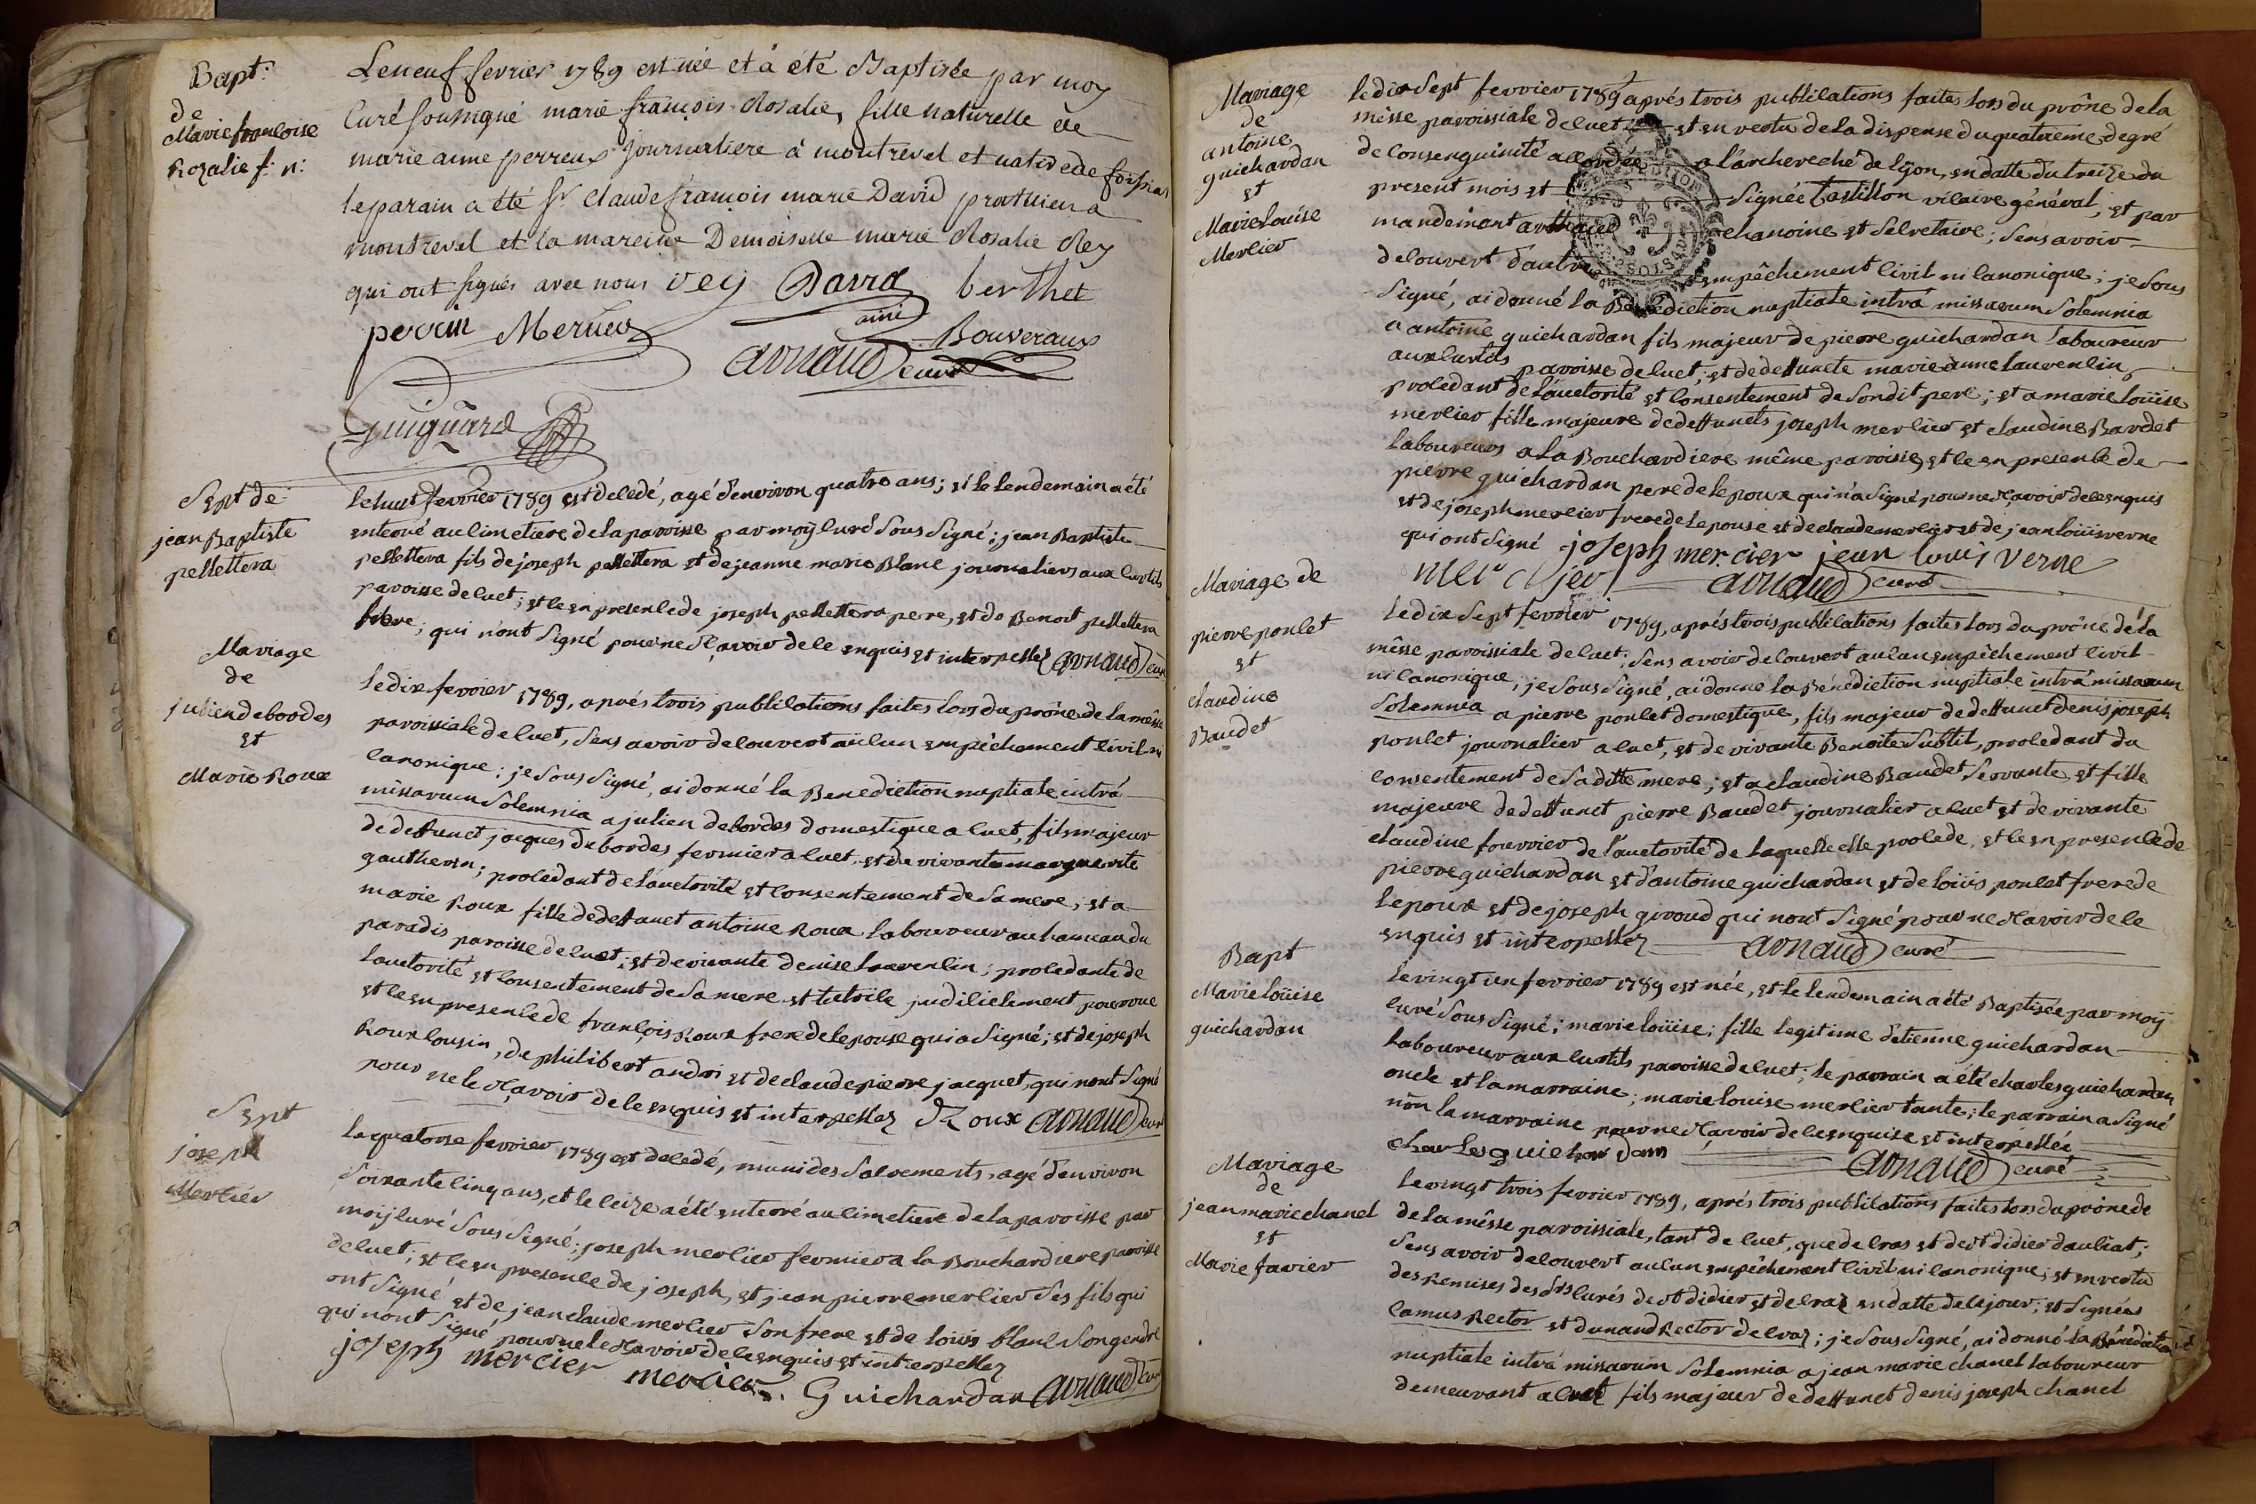 Bapt.
de
Marie francoise
Rozalie f. n.
Le neuf fevrier 1789 est née et à été Baptisée par moy
Curé soussigné marie françois Rosalie, fille naturelle de
marie anne perreux journaliere à montrevel et native de foissiat
le parain a été sr. claude françois marie David pratitien a
montrevel et la mareine Demoiselle marie Rosalie Rey
qui ont signés avec nous vey David berthet
perrin Mercier ainé Bouveraux
arnaud curé
Guiguard
Sept de
jean Baptiste
pellettera
le huit fevrier 1789 est decedé, agé d'environ quatre ans; et le lendemain a été
enterré au cimetiere de la paroisse par moy curé sous signé; jean Baptiste
pellettera fils de joseph pellettera et de jeanne marie Blanc journaliers aux curtils
paroisse de cuet; et ce en presence de joseph pellettera pere, et de Benoit pellettera
frere; qui n'ont signé pour ne sçavoir de ce enquis et interpellez arnaud curé
Mariage
de
julien debordes
et
Marie Roux
le dix fevrier 1789, aprés trois publications faites lors du prône de la mêsse
paroissiale de cuet, sens avoir decouvert aucun empêchement civil ni
canonique; je sous signé, ai donné la Benediction nuptiale intrá
missarum solemnia a julien debordes domestique a cuet, fils majeur
de deffunct jacques debordes fermier a cuet, et de vivante marguerite
gautheron; procedant de l'auctorité et consentement de sa mere; et a
marie Roux fille de deffunct antoine Roux laboureur au hameau du
paradis paroisse de cuet; et de vivante denise laurencin; procedante de
l'auctorité et consentement de sa mere et tutrice judiciellement pourvue
et ce en presence de françois Roux frere de lepouse qui a signé; et de joseph
Roux cousin, de philibert andré et de claude pierre jacquet, qui n'ont signé
pour ne le sçavoir de ce enquis et interpellez Roux arnaud curé
Sept
joseph
Mercier
le quatorse fevrier 1789 est decedé, muni des sacrements, agé d'environ
soixante cinq ans, et le seize a été enterré au cimetiere de la paroisse par
moij curé sous signé; joseph mercier fermier a la Bouchardiere paroisse
de cuet; et ce en presence de joseph, et jean pierre mercier ses fils qui
ont signé et de jean claude mercier son frere et de loüis blanc son gendre
qui n'ont signé pour ne le sçavoir de ce enquis et interpellez
joseph mercier mercier Guichardan arnaud curé
Mariage
de
antoine
guichardan
et
Marie louise
Mercier
le dix sept fevrier 1789 aprés trois publications faites lors du prône de la
mêsse paroissiale de cuet et en vertu de la dispense du quatrieme degré
de consenguinité accordée a l'archeveché de lÿon, en datte du treize du
present mois et signée Castillon vicaire général, et par
mandement chanoine et secretaire; sens avoir
decouvert d'autre empêchement civil ni canonique; je sous
signé, ai donné la Benediction nuptiale intrá missarum solemnia
a antoine guichardan fils majeur de pierre guichardan laboureur
aux curtils paroisse de cuet, et de deffuncte marie anne laurencin,
procedant de l'auctorité et consentement de son dit pere; et a marie loüise
mercier fille majeure de deffuncts joseph mercier et claudine Bardet
laboureurs a la Bouchardiere même paroisse, et ce en presence de
pierre guichardan pere de lepoux qui n'a signé pour ne sçavoir de ce enquis
et de joseph mercier frere de lepouse et de claude mercier et de jean loüis verne
qui ont signé joseph mercier jean louis verne
mercier arnaud curé
Mariage de
pierre ponlet
et
claudine
Baudet
le dix sept fevrier 1789, aprés trois publications faites lors du prône de la
mêsse paroissiale de cuet; sens avoir decouvert aucun empêchement civil
ni canonique; je sous signé, ai donné la Benediction nuptiale intrá missarum
solemnia a pierre ponlet domestique, fils majeur de deffunct denis joseph
ponlet journalier a cuet, et de vivante Benoite Subtil, procedant du
consentement de sa ditte mere; et a claudine Baudet servante, et fille
majeure de deffunct pierre Baudet journalier a cuet et de vivante
claudine fourrier de l'auctorité de laquelle elle procede, et ce en presence de
pierre guichardan et d'antoine guichardan et de loüis ponlet frere de
lepoux et de joseph givoud qui n'ont signé pour ne sçavoir de ce
enquis et interpellez arnaud curé
Bapt
Marie loüise
guichardan
le vingt un fevrier 1789 est née, et le lendemain a été Baptisée par moy
curé sous signé; marie loüise, fille legitime d'etienne guichardan
laboureur aux curtils paroisse de cuet; le parrain a été charles guichardan
oncle et la marraine; marie louise mercier tante; le parrain a signé
non la marraine pour ne sçavoir de ce enquise et interpellée
charles guichardan arnaud curé
Mariage
de
jean marie chanel
et
Marie favier
le vingt trois fevrier 1789, aprés trois publications faites lors du prône de
de la mêsse paroissiale, tant de cuet, que de cras et de st didier d'auciat;
sens avoir decouvert aucun empêchement civil ni canonique; et en vertu
des Remises des srs curés de st didier et de cras en datte de ce jour; et signées
Camus Rector et dunand Rector de cras; je sous signé, ai donné la Bénédiction
nuptiale intrá missarum solemnia a jean marie chanel laboureur
demeurant a cuet fils majeur de deffunct denis joseph chanel